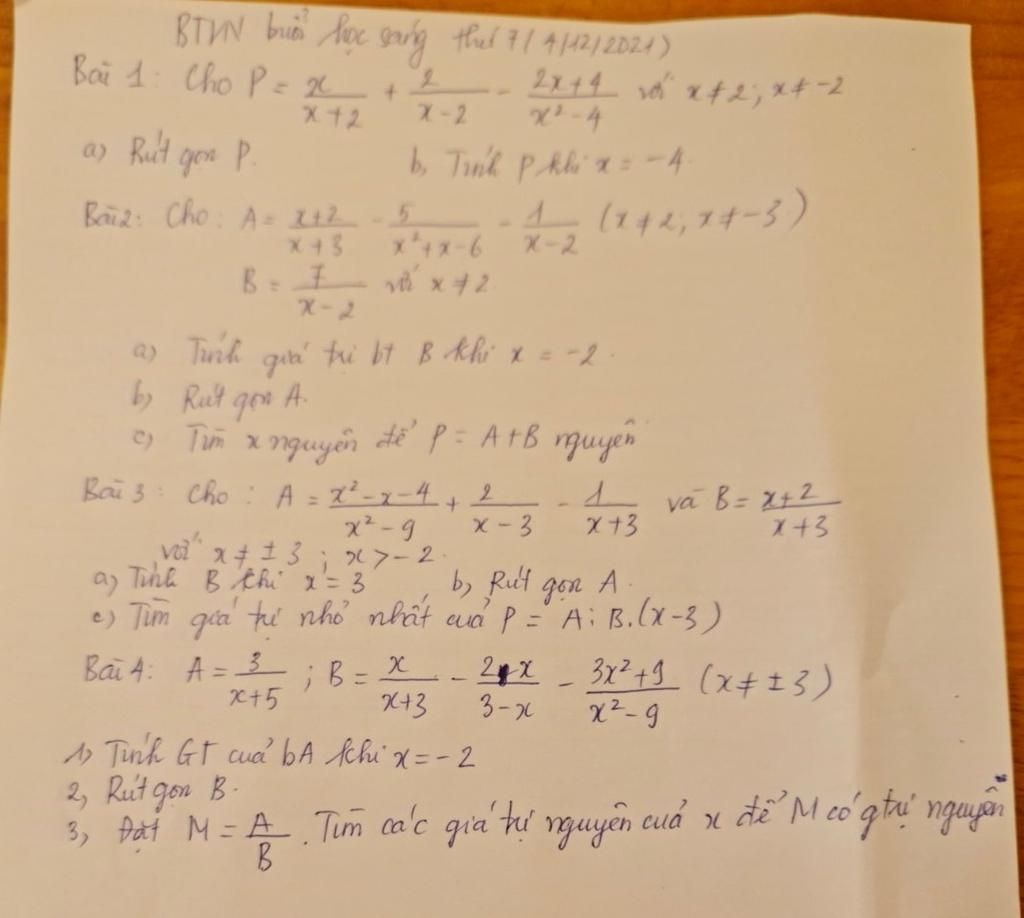 BTVN buổi học sáng thứ 7 (4/12/2021)
Bài 1: Cho P = x/(x+2) + 2/(x-2) - (2x+4)/(x²-4) với x ≠ 2; x ≠ -2
a) Rút gọn P. b, Tính P khi x = -4.
Bài 2: Cho: A = (x+2)/(x+3) - 5/(x²+x-6) - 1/(x-2) (x ≠ 2; x ≠ -3)
B = 7/(x-2) với x ≠ 2.
a) Tính giá trị bt B khi x = -2.
b) Rút gọn A.
c) Tìm x nguyên để P = A+B nguyên
Bài 3: Cho: A = (x²-x-4)/(x²-9) + 2/(x-3) - 1/(x+3) và B = (x+2)/(x+3)
với x ≠ ±3; x > -2.
a) Tính B khi x = 3 b, Rút gọn A.
c) Tìm giá trị nhỏ nhất của P = A : B.(x-3)
Bài 4: A = 3/(x+5); B = x/(x+3) - 2x/(3-x) - (3x²+9)/(x²-9) (x ≠ ±3)
1) Tính GT của bA khi x = -2
2, Rút gọn B.
3, Đặt M = A/B. Tìm các giá trị nguyên của x để M có gtrị nguyên